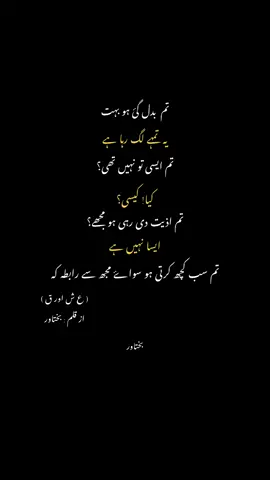 تم بدل گئ ہو بہت
یہ تمہے لگ رہا ہے
تم ایسی تو نہیں تھی؟
کیا! کیسی؟
تم اذیت دی رہی ہو مجھے؟
ایسا نہیں ہے
تم سب کچھ کرتی ہو سواۓ مجھ سے رابطہ کہ
(ع ش اور ق)
از قلم: بختاور
بختاور